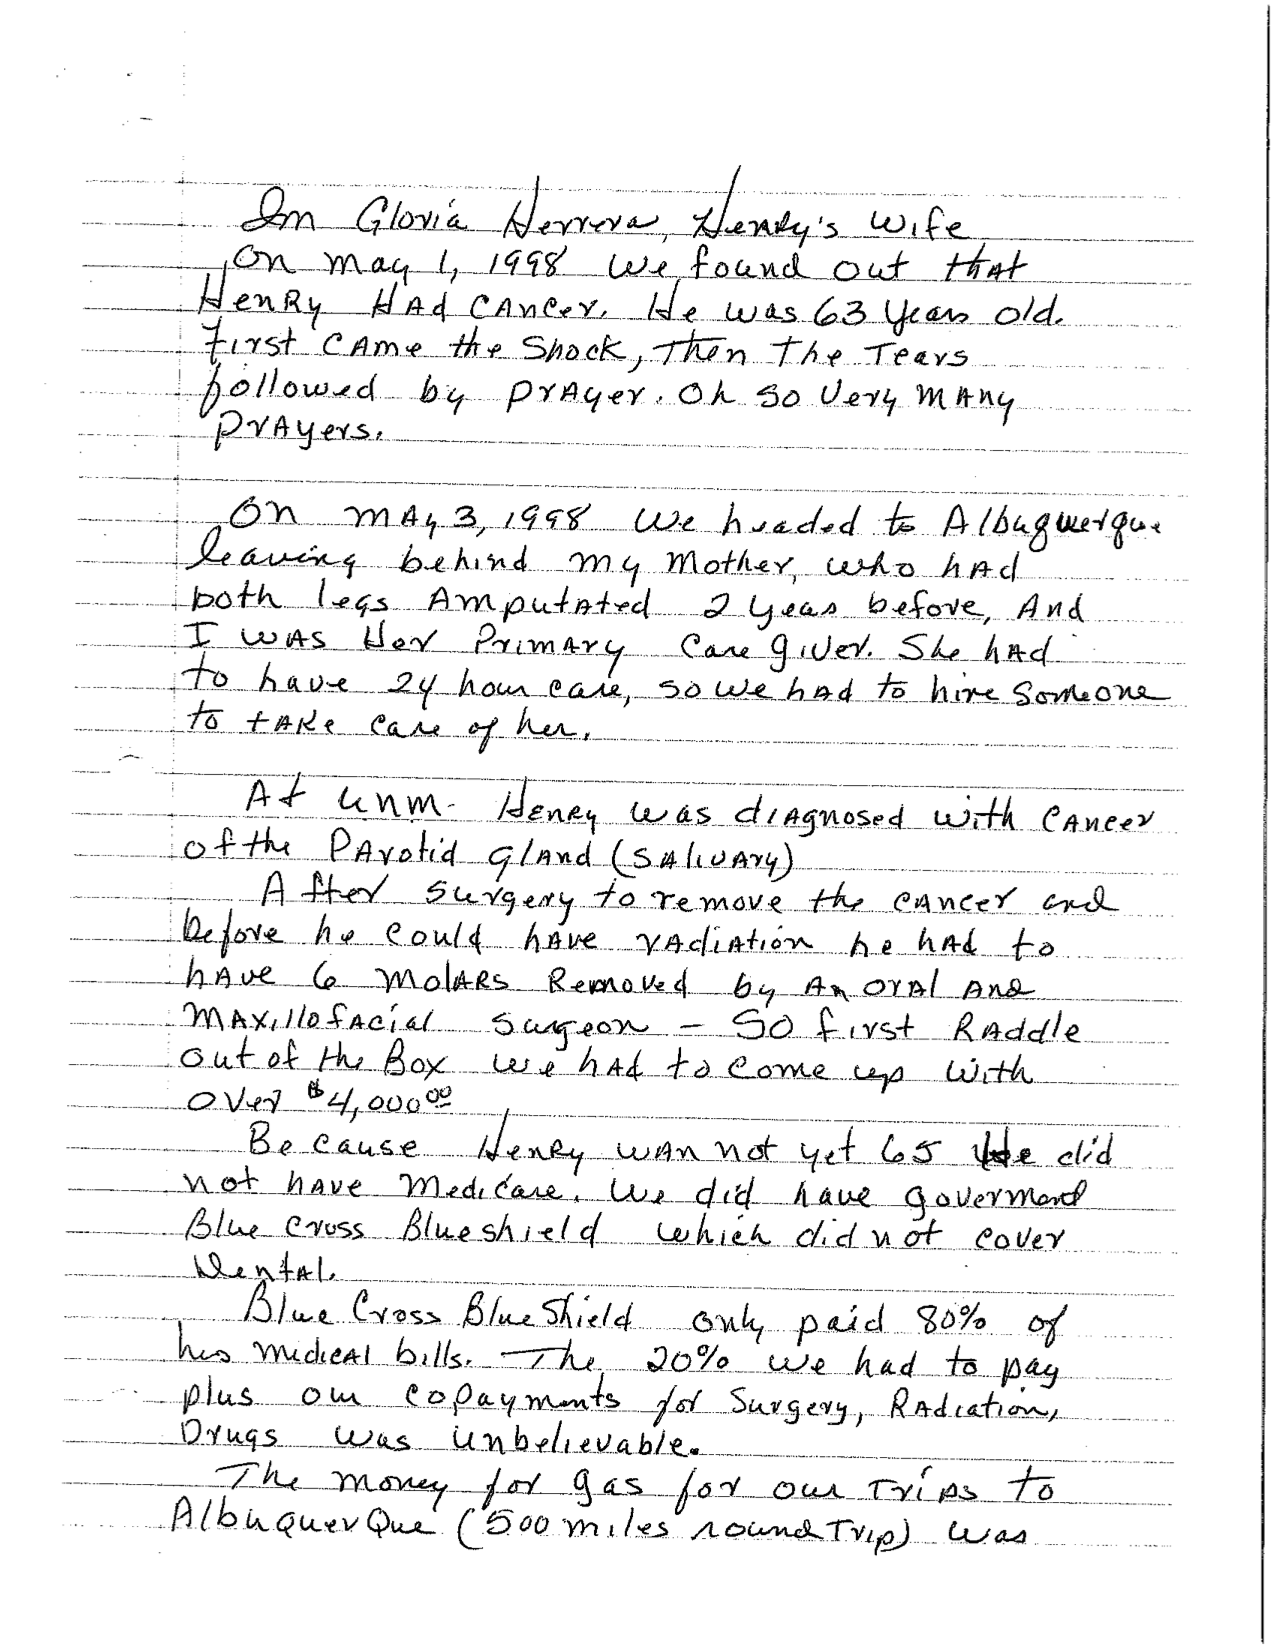 Im Gloria Herrera, Henry's Wife
On May 1, 1998 We found out that
Henry Had Cancer. He was 63 years old.
First came the Shock, Then The Tears
followed by prayer. Oh so very many
prayers.
On May 3, 1998 We headed to Albuquerque
leaving behind my Mother, who had
both legs Amputated 2 years before, And
I was Her Primary Care giver. She had
to have 24 hour care, so we had to hire someone
to take care of her.
At UNM Henry was diagnosed with cancer
of the Parotid gland (Salivary)
After surgery to remove the cancer and
before he could have radiation he had to
have 6 molars Removed by An oral And
Maxillofacial surgeon - So first Raddle
out of the Box we had to come up with
over $4,000.00
Because Henry wan not yet 65 He did
not have Medicare. We did have goverment
Blue Cross Blueshield which did not cover
Dental.
Blue Cross Blue Shield only paid 80% of
his medical bills. The 20% we had to pay
plus our copayments for Surgery, Radiation,
Drugs was unbelievable.
The money for gas for our Trips to
Albuquerque (500 miles round Trip) was